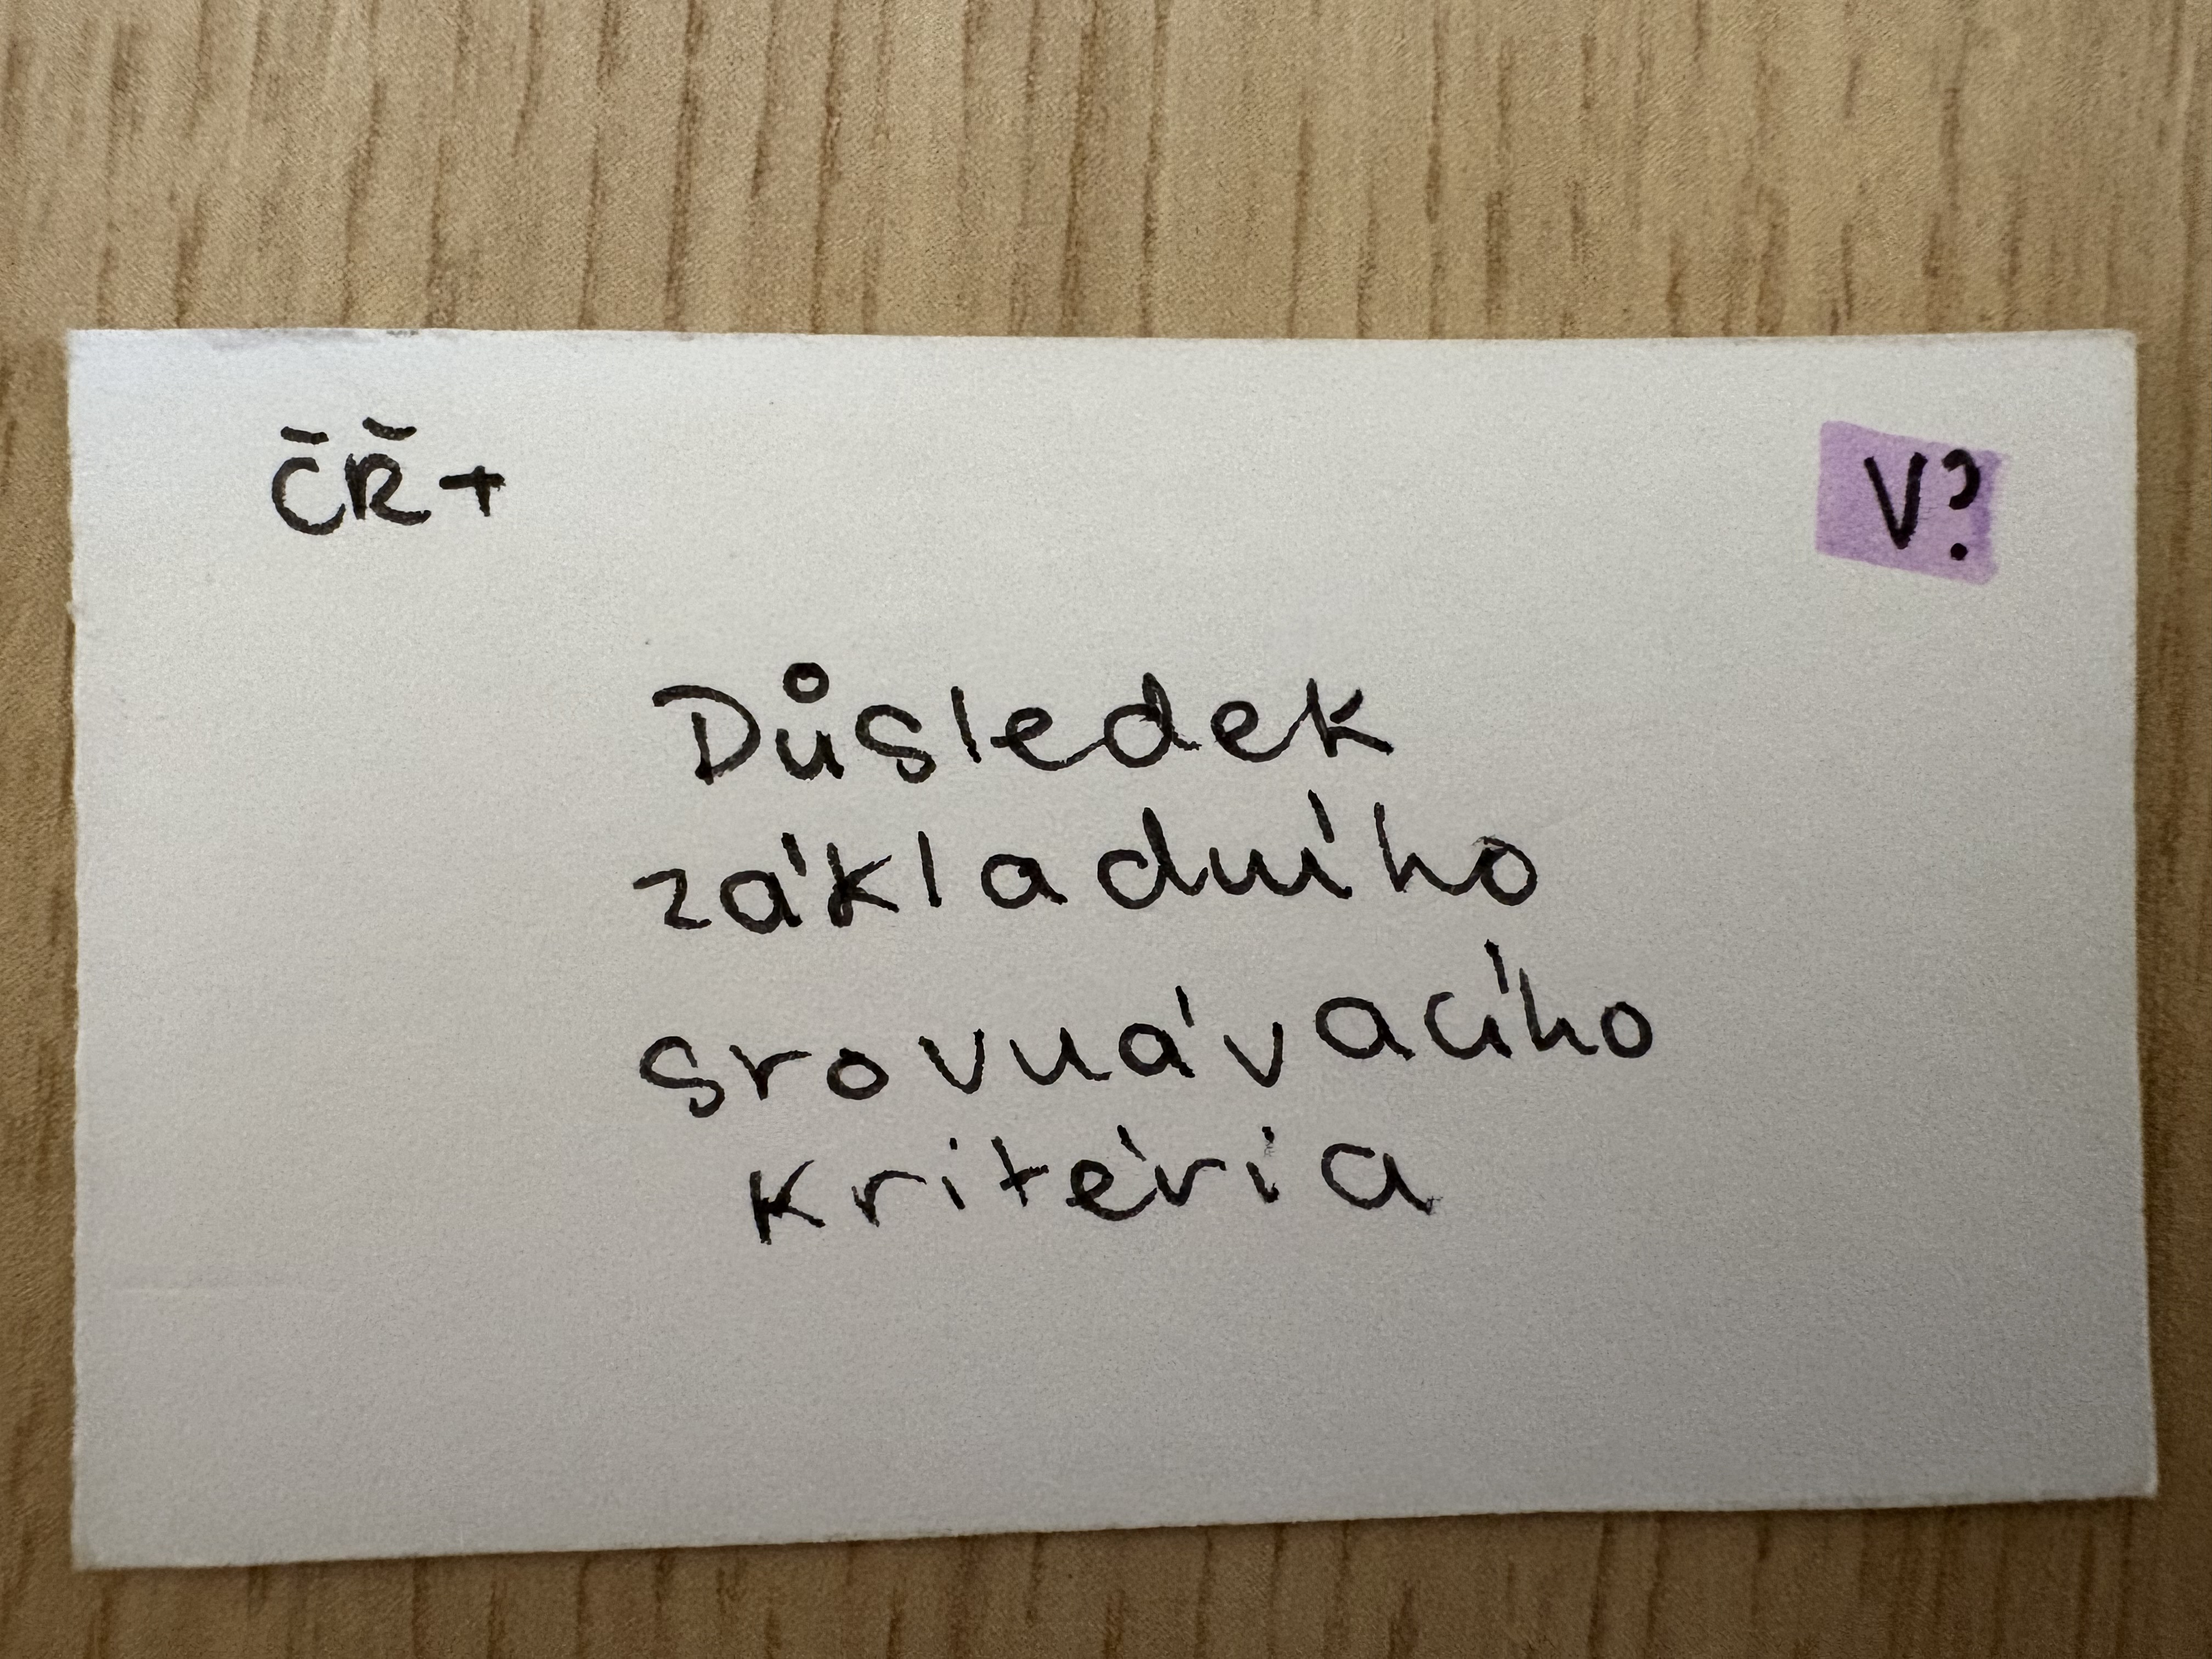 ČŘ+
V?
Důsledek
základního
srovnávacího
kritéria